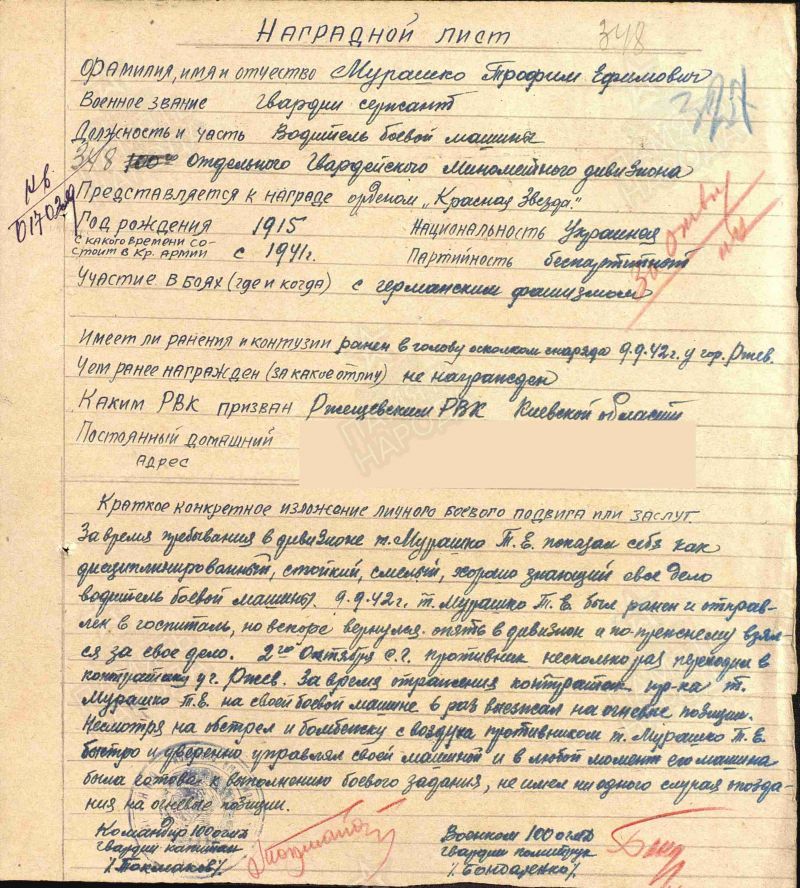 Наградной лист
348
Фамилия, имя и отчество Мурашко Трофим Ефимович
Военное звание гвардии сержант
Должность и часть Водитель боевой машины
348 100го отдельного Гвардейского Миномётного дивизиона
нв
017029
Представляется к награде орденом „Красная Звезда."
Год рождения 1915 Национальность Украинец
С какого времени со-
стоит в Кр. армии с 1941г. Партийность беспартийный
Участие в боях (где и когда) с германским фашизмом
Имеет ли ранения и контузии ранен в голову осколком снаряда 9.9.42г. у гор. Ржев.
Чем ранее награжден (за какое отлич) не награжден
Каким РВК призван Ржещевским РВК Киевской области
Постоянный домашний
адрес
Краткое конкретное изложение личного боевого подвига или заслуг.
За время пребывания в дивизионе т. Мурашко Т.Е. показал себя как
дисциплинированный, стойкий, смелый, хорошо знающий свое дело
водитель боевой машины. 9.9.42г. т. Мурашко Т.Е. был ранен и отправ-
лен в госпиталь, но вскоре вернулся опять в дивизион и по-прежнему взял-
ся за свое дело. 2го Октября с.г. противник несколько раз переходил в
контратаку у г. Ржев. За время отражения контратак пр-ка т.
Мурашко Т.Е. на своей боевой машине 6 раз выезжал на огневые позиции.
Несмотря на обстрел и бомбежку с воздуха противником т. Мурашко Т.Е.
быстро и уверенно управлял своей машиной и в любой момент его машина
была готова к выполнению боевого задания, не имел ни одного случая опозда-
ния на огневые позиции.
Командир 100 огмд Военком 100 огмд
гвардии капитан гвардии политрук
/Токмаков/ /Бондаренко/